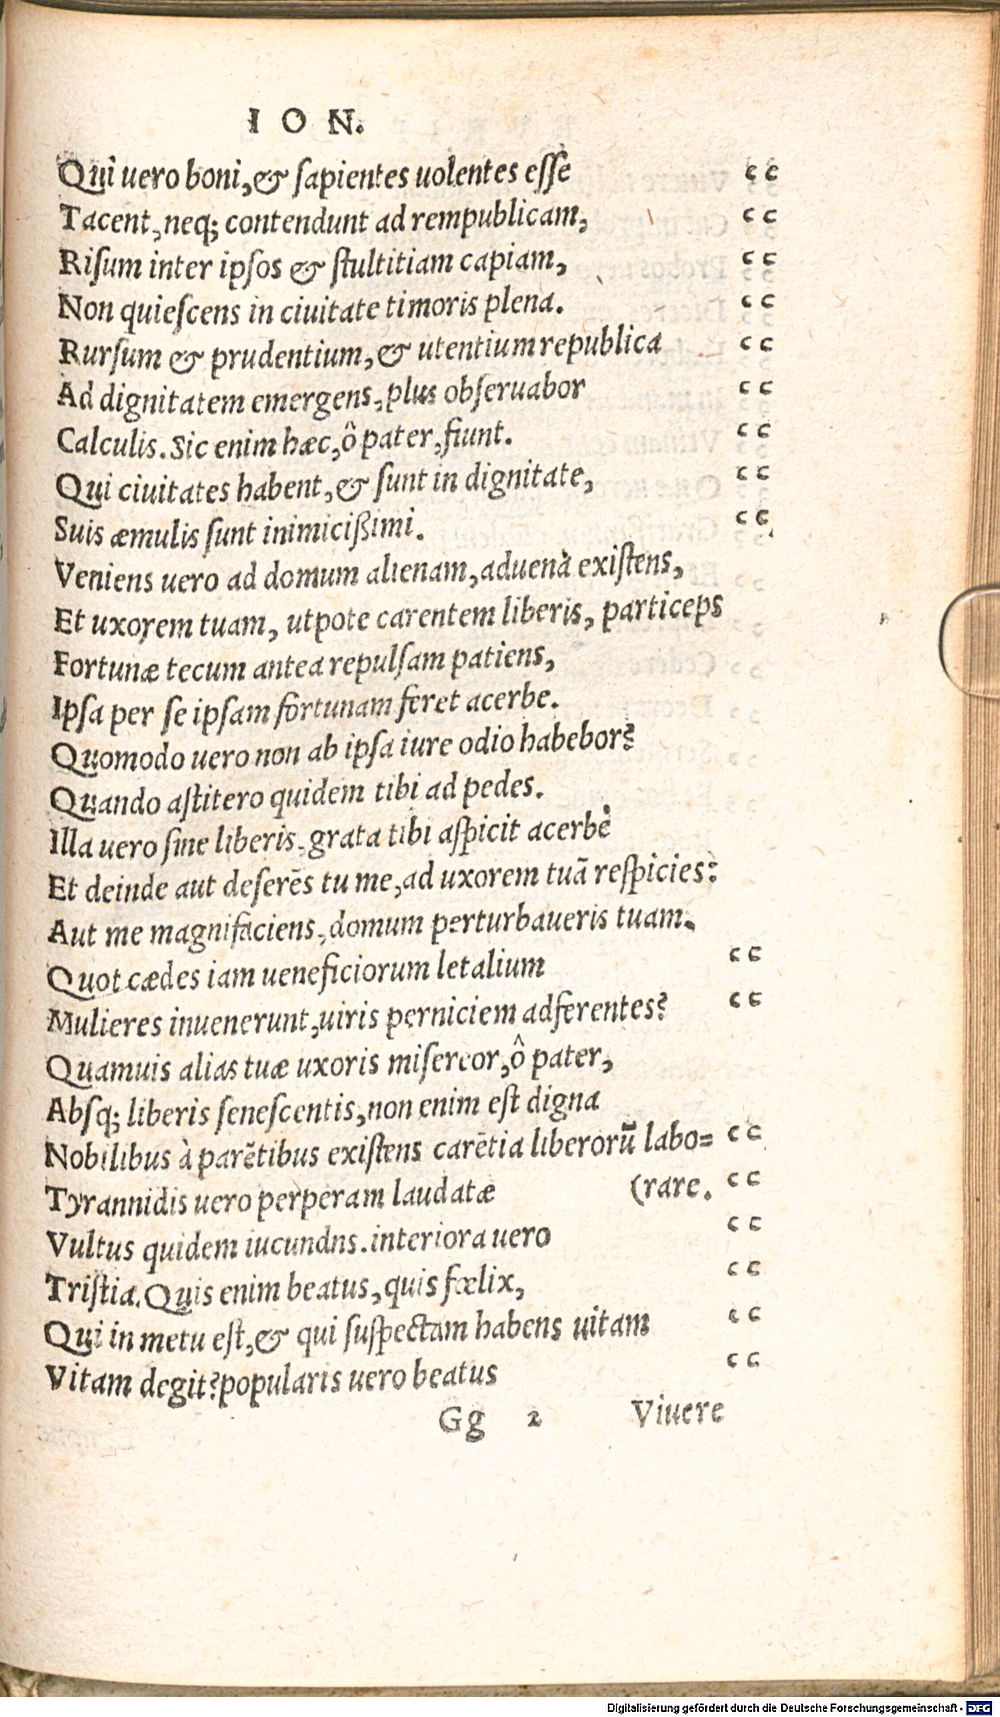 ION.
Qui vero boni,& sapientes uolentes esse cc
Tacent,neq; contendunt ad rempublicam, cc
Risum inter ipsos & stultitiam capiam, cc
Non quiescens in ciuitate timoris plena. cc
Rursum & prudentium,& utentium republica cc
Ad dignitatem emergens,plus obseruabor cc
Calculis. Sic enim hæc,ô pater,fiunt. cc
Qui ciuitates habent,& sunt in dignitate, cc
Suis æmulis sunt inimicißimi. cc
Veniens uero ad domum alienam,aduena existens,
Et uxorem tuam, utpote carentem liberis, particeps
Fortunæ tecum antea repulsam patiens,
Ipsa per se ipsam fortunam feret acerbe.
Quomodo uero non ab ipsa iure odio habebor?
Quando astitero quidem tibi ad pedes.
Illa uero sine liberis,grata tibi aspicit acerbè
Et deinde aut deserēs tu me,ad uxorem tuā respicies:
Aut me magnifaciens,domum perturbaueris tuam.
Quot cædes iam ueneficiorum letalium cc
Mulieres inuenerunt,uiris perniciem adferentes? cc
Quamuis alias tuæ uxoris misereor,ô pater,
Absq; liberis senescentis,non enim est digna
Nobilibus à parētibus existens carētia liberorū labo= cc
Tyrannidis uero perperam laudatæ (rare. cc
Vultus quidem iucundns.interiora uero cc
Tristia. Quis enim beatus,quis fœlix, cc
Qui in metu est,& qui suspectam habens uitam cc
Vitam degit?popularis uero beatus cc
Gg 2 Viuere
Digitalisierung gefördert durch die Deutsche Forschungsgemeinschaft - DFG